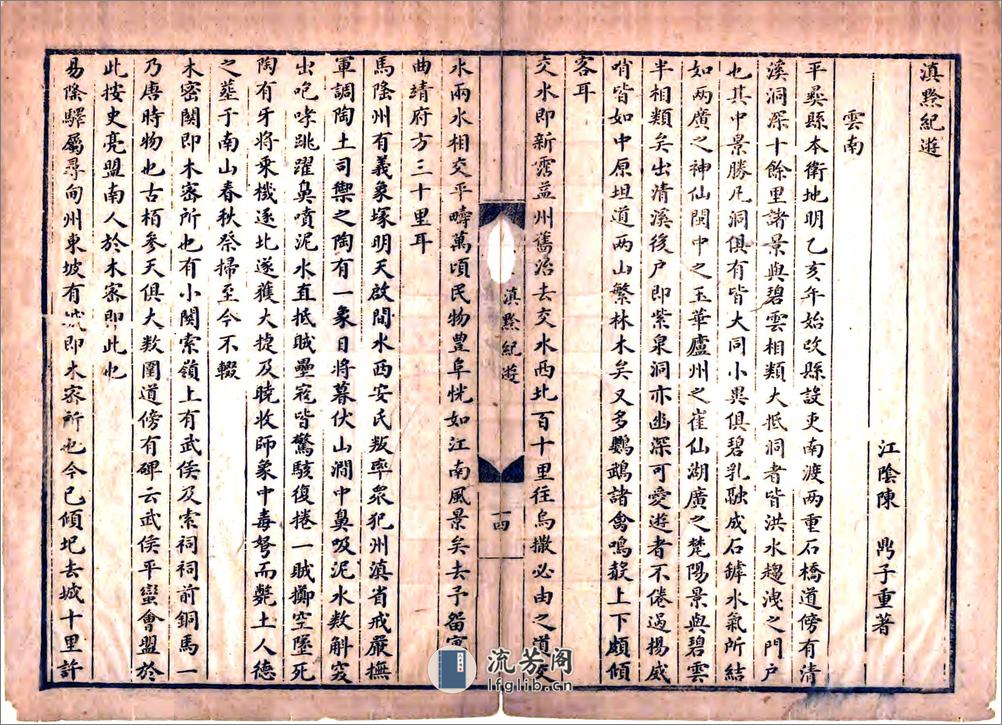 滇黔紀遊
江陰陳　鼎子重著
雲南
平彝縣本衛地明乙亥年始改縣設吏南渡兩重石橋道傍有清
溪洞深十餘里諸景與碧雲相類大抵洞者皆洪水趨洩之門戶
也其中景勝凡洞俱有皆大同小異俱碧乳融成石罅水氣所結
如兩廣之神仙閩中之玉華廬州之崔仙湖廣之楚陽景與碧雲
半相類矣出清溪後戶即紫泉洞亦幽深可愛遊者不倦過楊威
哨皆如中原坦道两山繁林木矣又多鸚鵡諸禽鳴鼔上下頗傾
客耳
交水即新霑益州舊治去交水西北百十里往烏撒必由之道交
水兩水相交平疇萬頃民物豊阜恍如江南風景矣去予畱寓
曲靖府方三十里耳
馬陰州有義象塚明天啟間水西安氏叛率衆犯州滇省戒嚴撫
軍調陶土司禦之陶有一象日將暮伏山澗中鼻吸泥水數斛突
出咆哮跳躍鼻噴泥水直抵賊壘寇皆驚駭復捲一賊擲空墜死
陶有牙將乘機逐北遂獲大捷及曉收師象中毒弩而斃土人德
之塟于南山春秋祭掃至今不輟
木密関即木密所也有小関索嶺上有武侯及索祠祠前銅馬一
乃唐時物也古栢參天俱大数圍道傍有碑云武侯平蠻會盟於
此按史亮盟南人於木密即此也
易隆驛屬尋甸州東坡有城即木密所也今已傾圮去城十里許
滇黔紀遊
一四
流芳阁
lfglib.cn